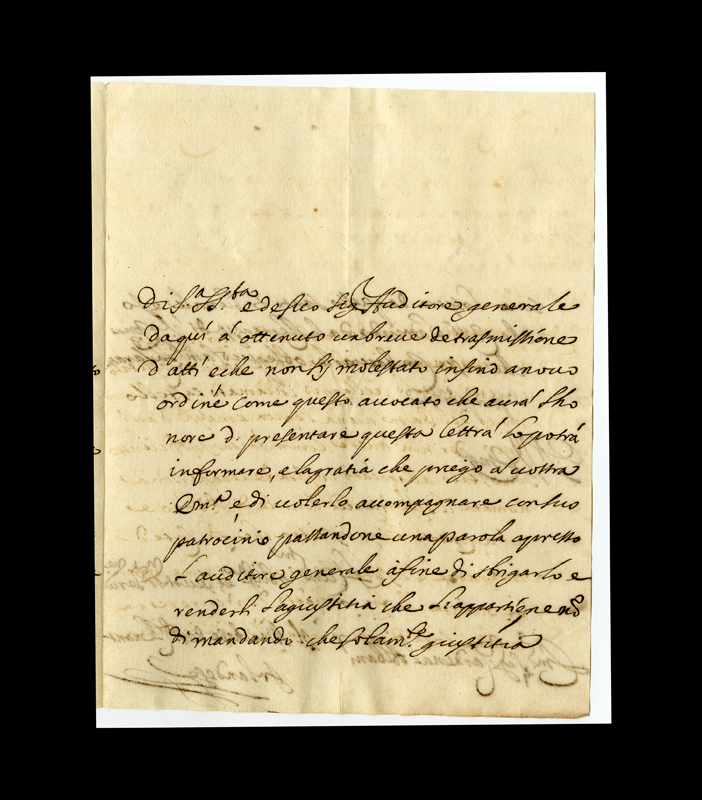 Di S.a SS.ta e desio Sig. Auditore generale
da quí á ottenuto un breue de trasmissione
d'atti e che non sij molestato insino a nouo
ordine come questo auuocato che aurá l'ho
nore d. presentare questa lettrá lo potrá
informare, e la gratia che priego al uostra
Em.a e di uolerlo accompagnare con suo
patrocinio passandone una parola apresso
l'auditore generale á fine di sbrigarlo e
renderli la giustitia che li appartiene nõ
dimandando che solam.te giustitia